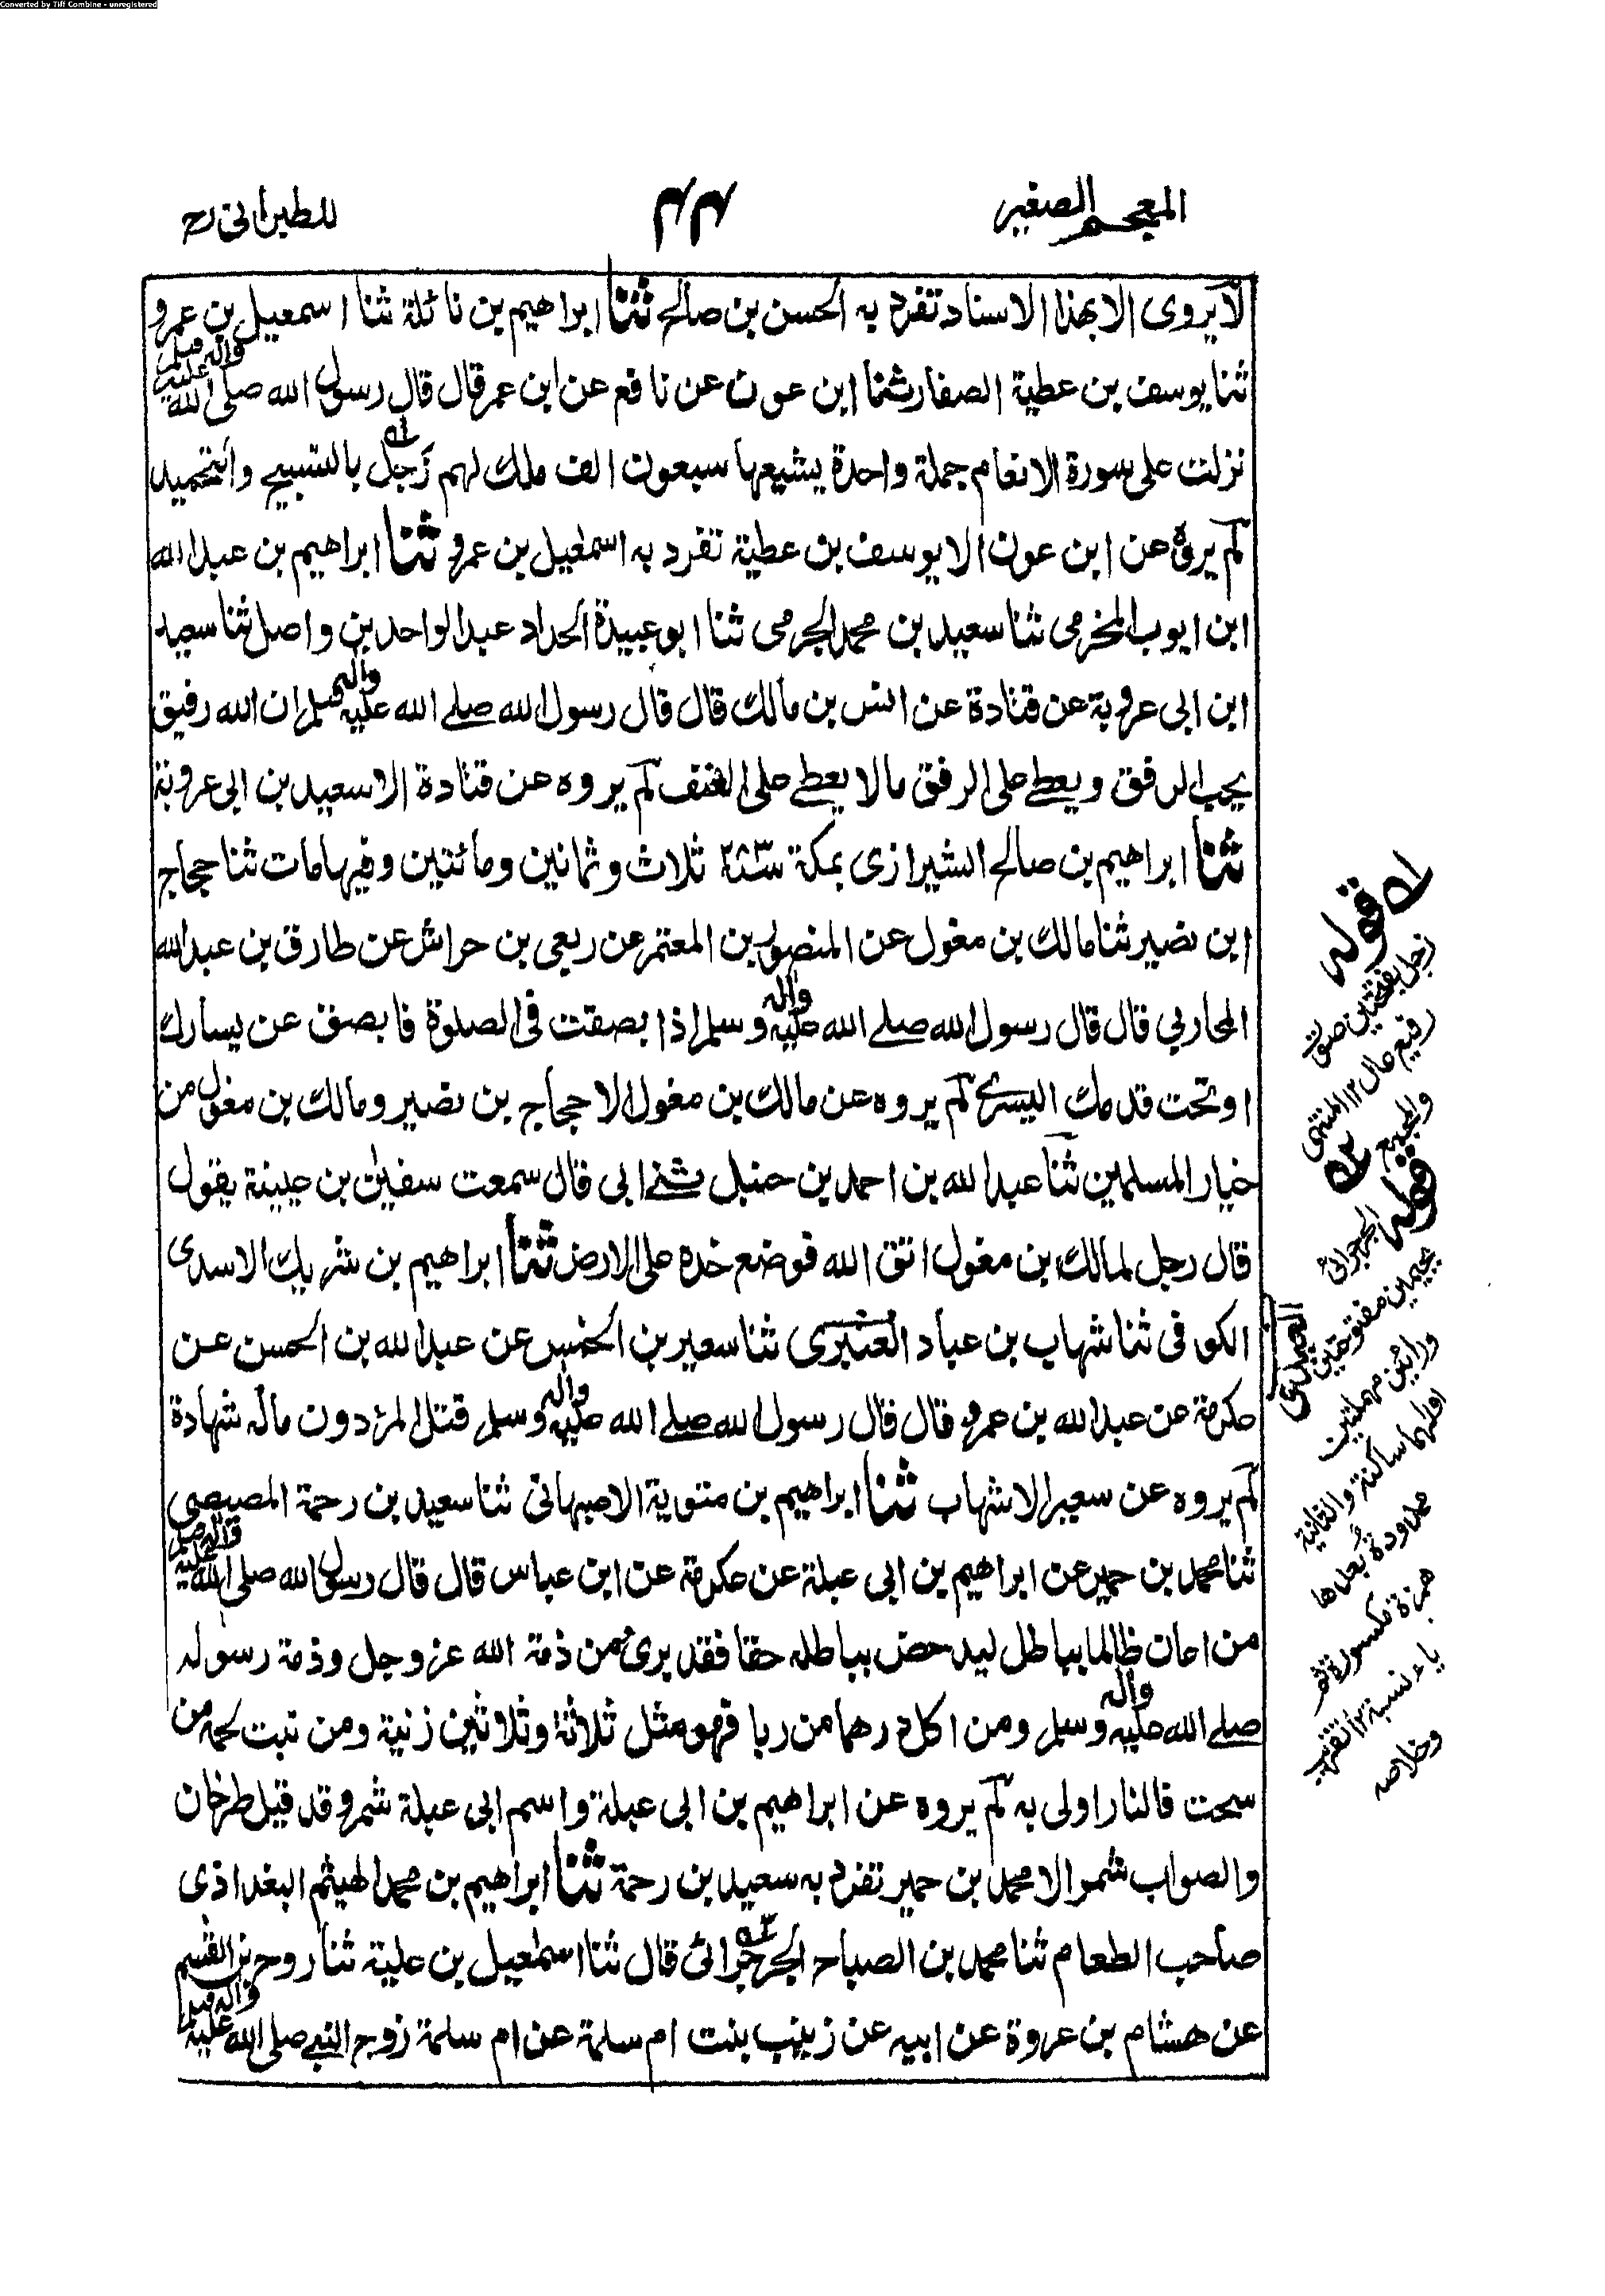 Converted by Tiff Combine - unregistered
المعجم الصغير
۴۴
للطبرانى رح
لا يروى الا بهذا الاسناد تفرد به الحسن بن صالح ثنا ابراهيم بن نائلة ثنا اسمعيل بن عمرو
ثنا يوسف بن عطية الصفار ثنا ابن عون عن نافع عن ابن عمر قال قال رسول الله صلى الله عليه واله وسلم
نزلت على سورة الانعام جملة واحدة يشيعها سبعون الف ملك لهم زجل بالتسبيح والتحميد
لم يروه عن ابن عون الا يوسف بن عطية تفرد به اسمعيل بن عمرو ثنا ابراهيم بن عبد الله
ابن ايوب المخرمى ثنا سعيد بن محمد الجرمى ثنا ابو عبيدة الحداد عبد الواحد بن واصل ثنا سعيد
ابن ابى عروبة عن قتادة عن انس بن مالك قال قال رسول الله صلے الله عليه واله وسلم ان الله رفيق
يحب الرفق ويعطے على الرفق مالا يعطے على العنف لم يروه عن قتادة الا سعيد بن ابى عروبة
ثنا ابراهيم بن صالح الشيرازى بمكة سنة ۲۸۳ ثلاث وثمانين ومائتين وفيها مات ثنا حجاج
ابن نصير ثنا مالك بن مغول عن المنصور بن المعتمر عن ربعى بن حراش عن طارق بن عبد الله
المحاربي قال قال رسول الله صلے الله عليه واله وسلم اذا بصقت فى الصلوة فابصق عن يسارك
او تحت قدمك اليسرى لم يروه عن مالك بن مغول الا حجاج بن نصير ومالك بن مغول من
خيار المسلمين ثنا عبد الله بن احمد بن حنبل ثنے ابى قال سمعت سفيٰن بن عيينة يقول
قال رجل لمالك بن مغول اتق الله فوضع خده على الارض ثنا ابراهيم بن شريك الاسدى
الكوفى ثنا شهاب بن عباد العنبرى ثنا سعير بن الخمس عن عبد الله بن الحسن عن
عكرمة عن عبد الله بن عمرو قال قال رسول الله صلے الله عليه واله وسلم قتل المرء دون ماله شهادة
لم يروه عن سعير الا شهاب ثنا ابراهيم بن متوية الاصبهانى ثنا سعيد بن رحمة المصيصى
ثنا محمد بن حمير عن ابراهيم بن ابى عبلة عن عكرمة عن ابن عباس قال قال رسول الله صلى الله عليه واله وسلم
من اعان ظالما بباطل ليدحض بباطله حقا فقد برئ من ذمة الله عز وجل وذمة رسوله
صلے الله عليه واله وسلم ومن اكل درهما من ربا فهو مثل ثلاثة وثلاثين زنية ومن نبت لحمه من
سحت فالنار اولى به لم يروه عن ابراهيم بن ابى عبلة واسم ابى عبلة شمر وقد قيل طرخان
والصواب شمر الا محمد بن حمير تفرد به سعيد بن رحمة ثنا ابراهيم بن محمد الهيثم البغداذى
صاحب الطعام ثنا محمد بن الصباح الجرجرائى قال ثنا اسمٰعيل بن علية ثنا روح بن القسم
عن هشام بن عروة عن ابيه عن زينب بنت ام سلمة عن ام سلمة زوج النبے صلى الله عليه واله وسلم
ل‍ه قوله
زجل بفتحتين صوت
رفيع عال ۱۲ المنتهى
والمجمع
قوله الجرجرائى
بجيمين مفتوحتين
ورائين مهملتين
اولهما ساكنة والثانية
ممدودة بعدها
همزة مكسورة ثم
ياء نسبة ۱۲ تقريب
وخلاصه
العبدى